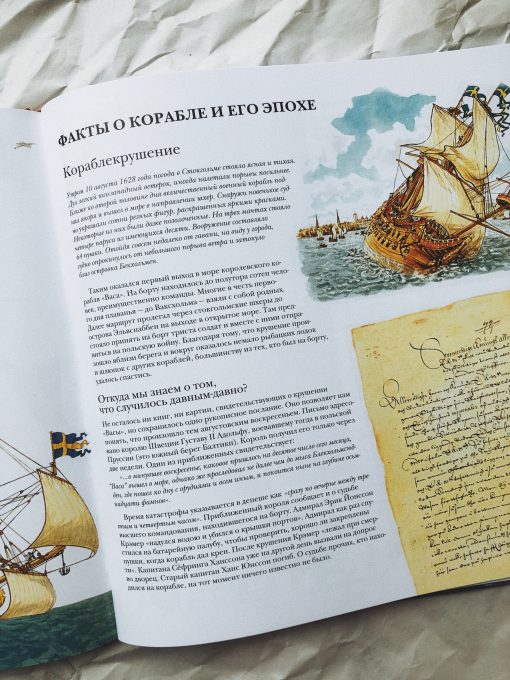 ФАКТЫ О КОРАБЛЕ И ЕГО ЭПОХЕ
Кораблекрушение
Утром 10 августа 1628 года погода в Стокгольме стояла ясная и тихая.
Дул легкий юго-западный ветерок, иногда налетали порывы посильнее.
Ближе ко второй половине дня величественный военный корабль под-
нял якоря и вышел в море в направлении шхер. Снаружи новенькое суд-
но украшали сотни резных фигур, раскрашенных яркими красками.
Некоторые из них были даже позолоченные. На трех мачтах стояло
четыре паруса из имеющихся десяти. Вооружение составляло
64 пушки. Отойдя совсем недалеко от гавани, на виду у города,
судно опрокинулось от небольшого порыва ветра и затонуло
близ островка Бекхольмен.
Таким оказался первый выход в море королевского ко-
рабля «Васа». На борту находилось до полутора сотен чело-
век, преимущественно команды. Многие в честь перво-
го дня плаванья – до Ваксхольма – взяли с собой родных.
Далее маршрут пролегал через стокгольмские шхеры до
острова Эльвснаббен на выходе в открытое море. Там пред-
стояло принять на борт триста солдат и вместе с ними отпра-
виться на польскую войну. Благодаря тому, что крушение прои-
зошло вблизи берега и вокруг оказалось немало рыбацких лодок
и шлюпок с других кораблей, большинству из тех, кто был на борту,
удалось спастись.
Откуда мы знаем о том,
что случилось давным-давно?
Не осталось ни книг, ни картин, свидетельствующих о крушении
«Васы», но сохранилось одно рукописное послание. Оно позволяет нам
понять, что произошло тем августовским воскресеньем. Письмо адресо-
вано королю Швеции Густаву II Адольфу, воевавшему тогда в польской
Пруссии (это южный берег Балтики). Король получил его только через
две недели. Один из приближенных свидетельствует:
«...в минувшее воскресенье, каковое пришлось на десятое число сего месяца,
"Васа" вышел в море, однако же проследовал не далее чем до мыса Блекхольмсуд-
ден, где пошел ко дну с орудиями и всем иным, и покоится ныне на глубине осьм-
надцати фамнов».
Время катастрофы указывается в депеше как «сразу по вечерне между тре-
тьим и четвертым часом». Приближенный короля сообщает и о судьбе
высшего командования, находившегося на борту. Адмирал Эрик Йонссон
Крэмер «надулся водою и убился о крышки портов». Адмирал как раз спу-
стился на батарейную палубу, чтобы проверить, хорошо ли закреплены
пушки, когда корабль дал крен. После крушения Крэмер «лежал при смер-
ти». Капитана Сёфринга Ханссона уже на другой день вызвали на допрос
во дворец. Старый капитан Ханс Юнссон погиб. О судьбе прочих, кто нахо-
дился на корабле, на тот момент ничего известно не было.